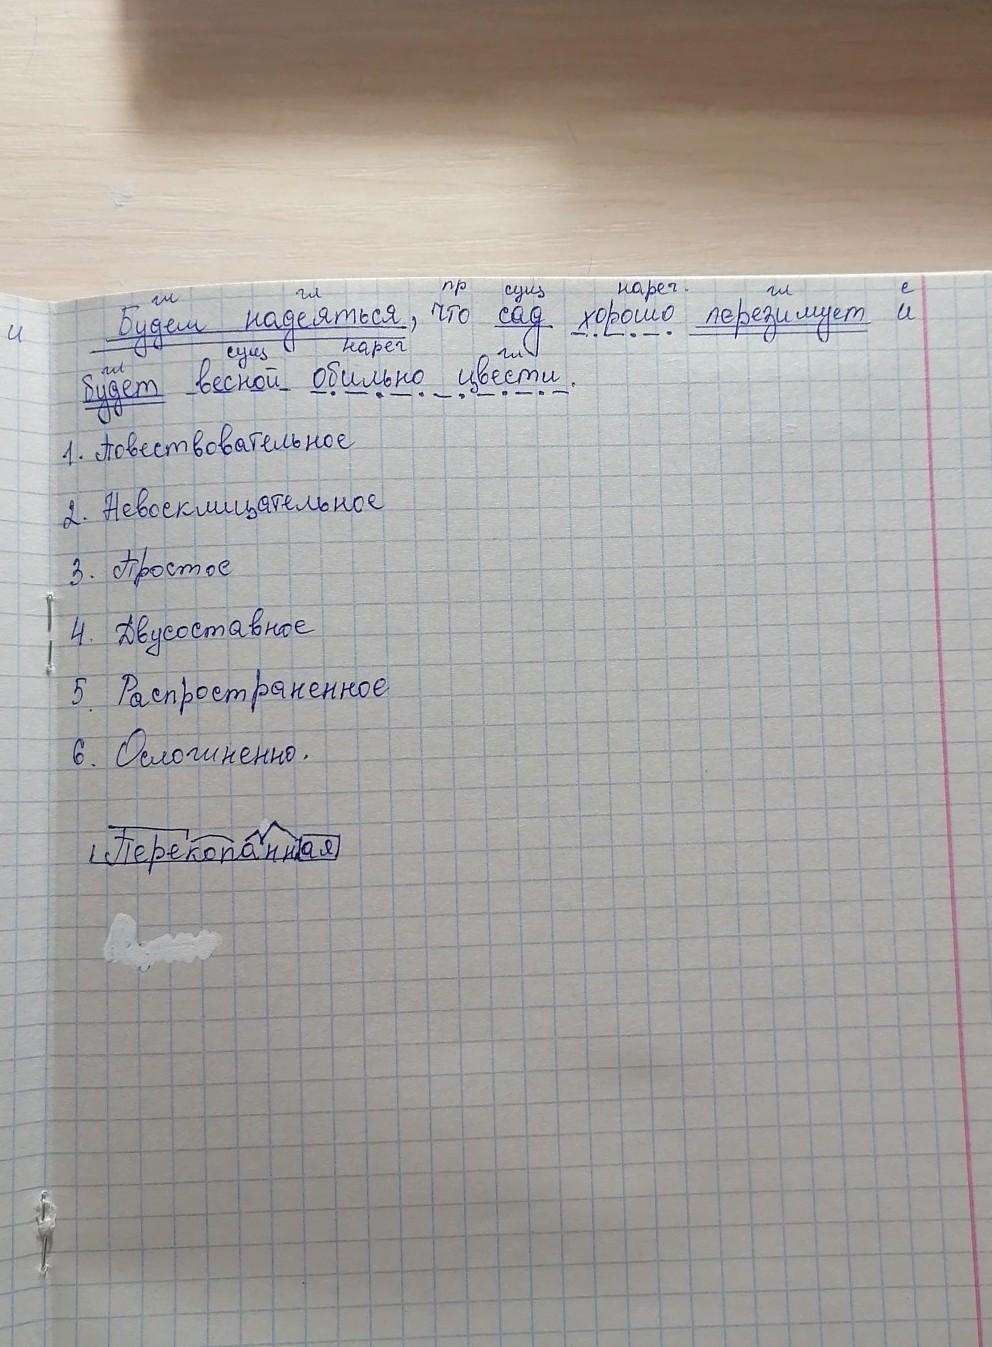 гл гл пр сущ нареч. гл с
и Будем надеяться, что сад хорошо перезимует и
гл сущ нареч гл
будет весной обильно цвести.
1. Повествовательное
2. Невосклицательное
3. Простое
4. Двусоставное
5. Распространенное
6. Осложненно.
Перекопанная